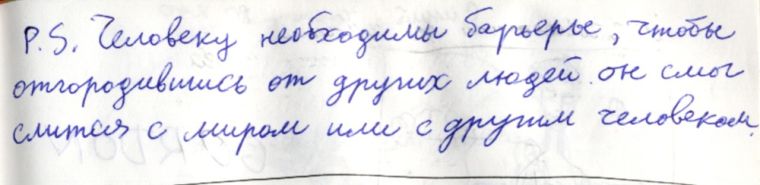 P.S. Человеку необходимы барьеры, чтобы
отгородившись от других людей он смог
слится с миром или с другим человеком.